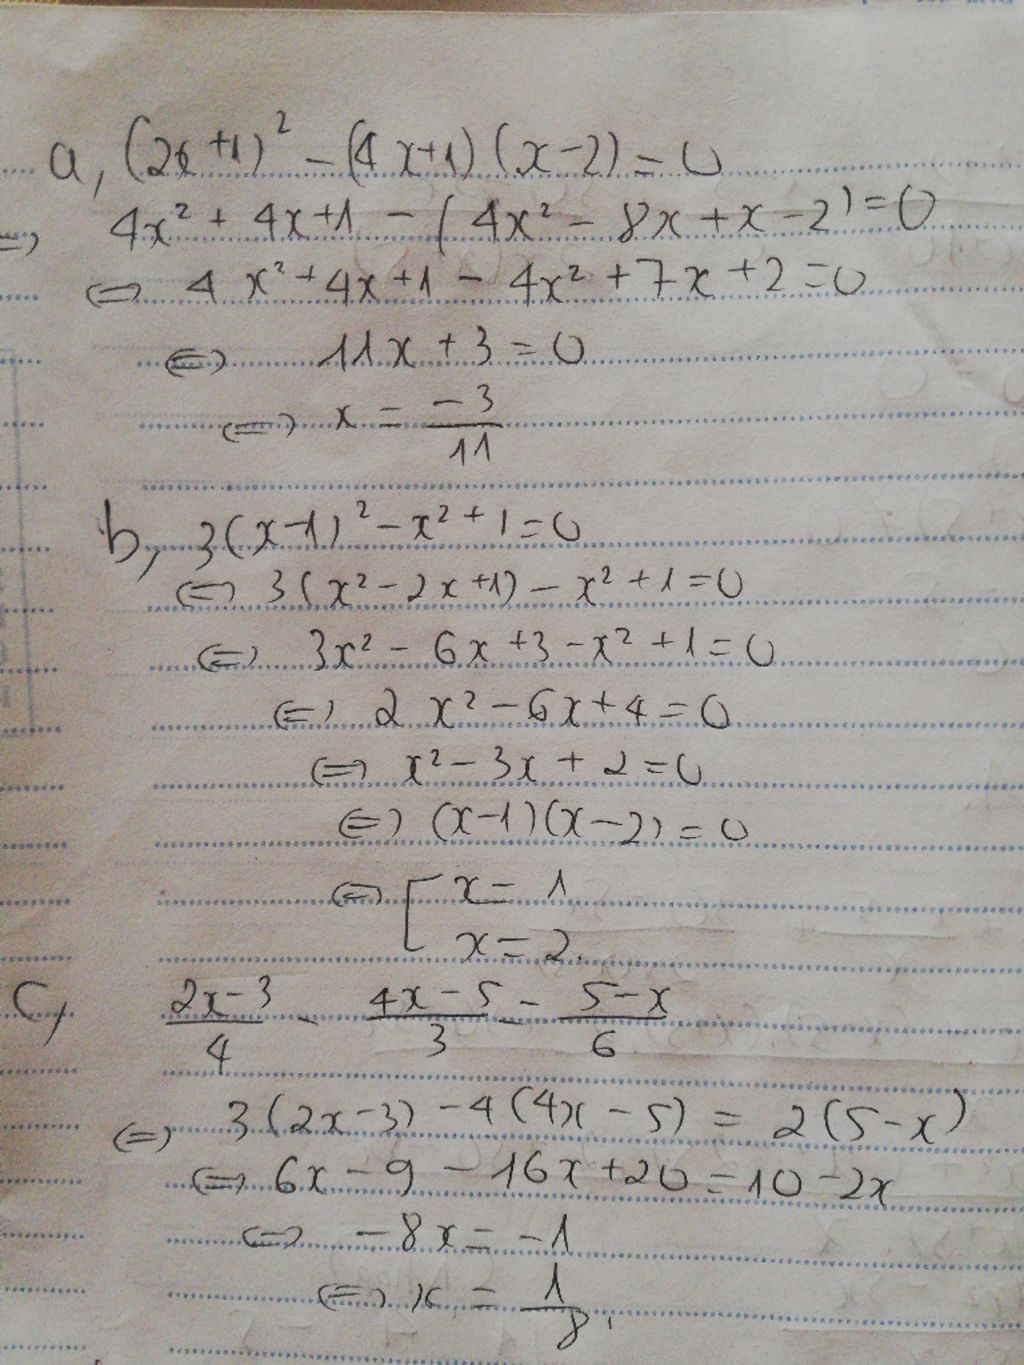 a, (2x+1)² - (4x+1)(x-2) = 0
⇔ 4x² + 4x+1 - (4x² - 8x + x - 2) = 0
⇔ 4x² + 4x + 1 - 4x² + 7x + 2 = 0
⇔ 11x + 3 = 0
⇔ x = -3/11
b, 3(x-1)² - x² + 1 = 0
⇔ 3(x² - 2x + 1) - x² + 1 = 0
⇔ 3x² - 6x + 3 - x² + 1 = 0
⇔ 2x² - 6x + 4 = 0
⇔ x² - 3x + 2 = 0
⇔ (x-1)(x-2) = 0
⇔ [ x = 1
x = 2.
c, (2x-3)/4 - (4x-5)/3 = (5-x)/6
⇔ 3(2x-3) - 4(4x-5) = 2(5-x)
⇔ 6x - 9 - 16x + 20 = 10 - 2x
⇔ -8x = -1
⇔ x = 1/8.